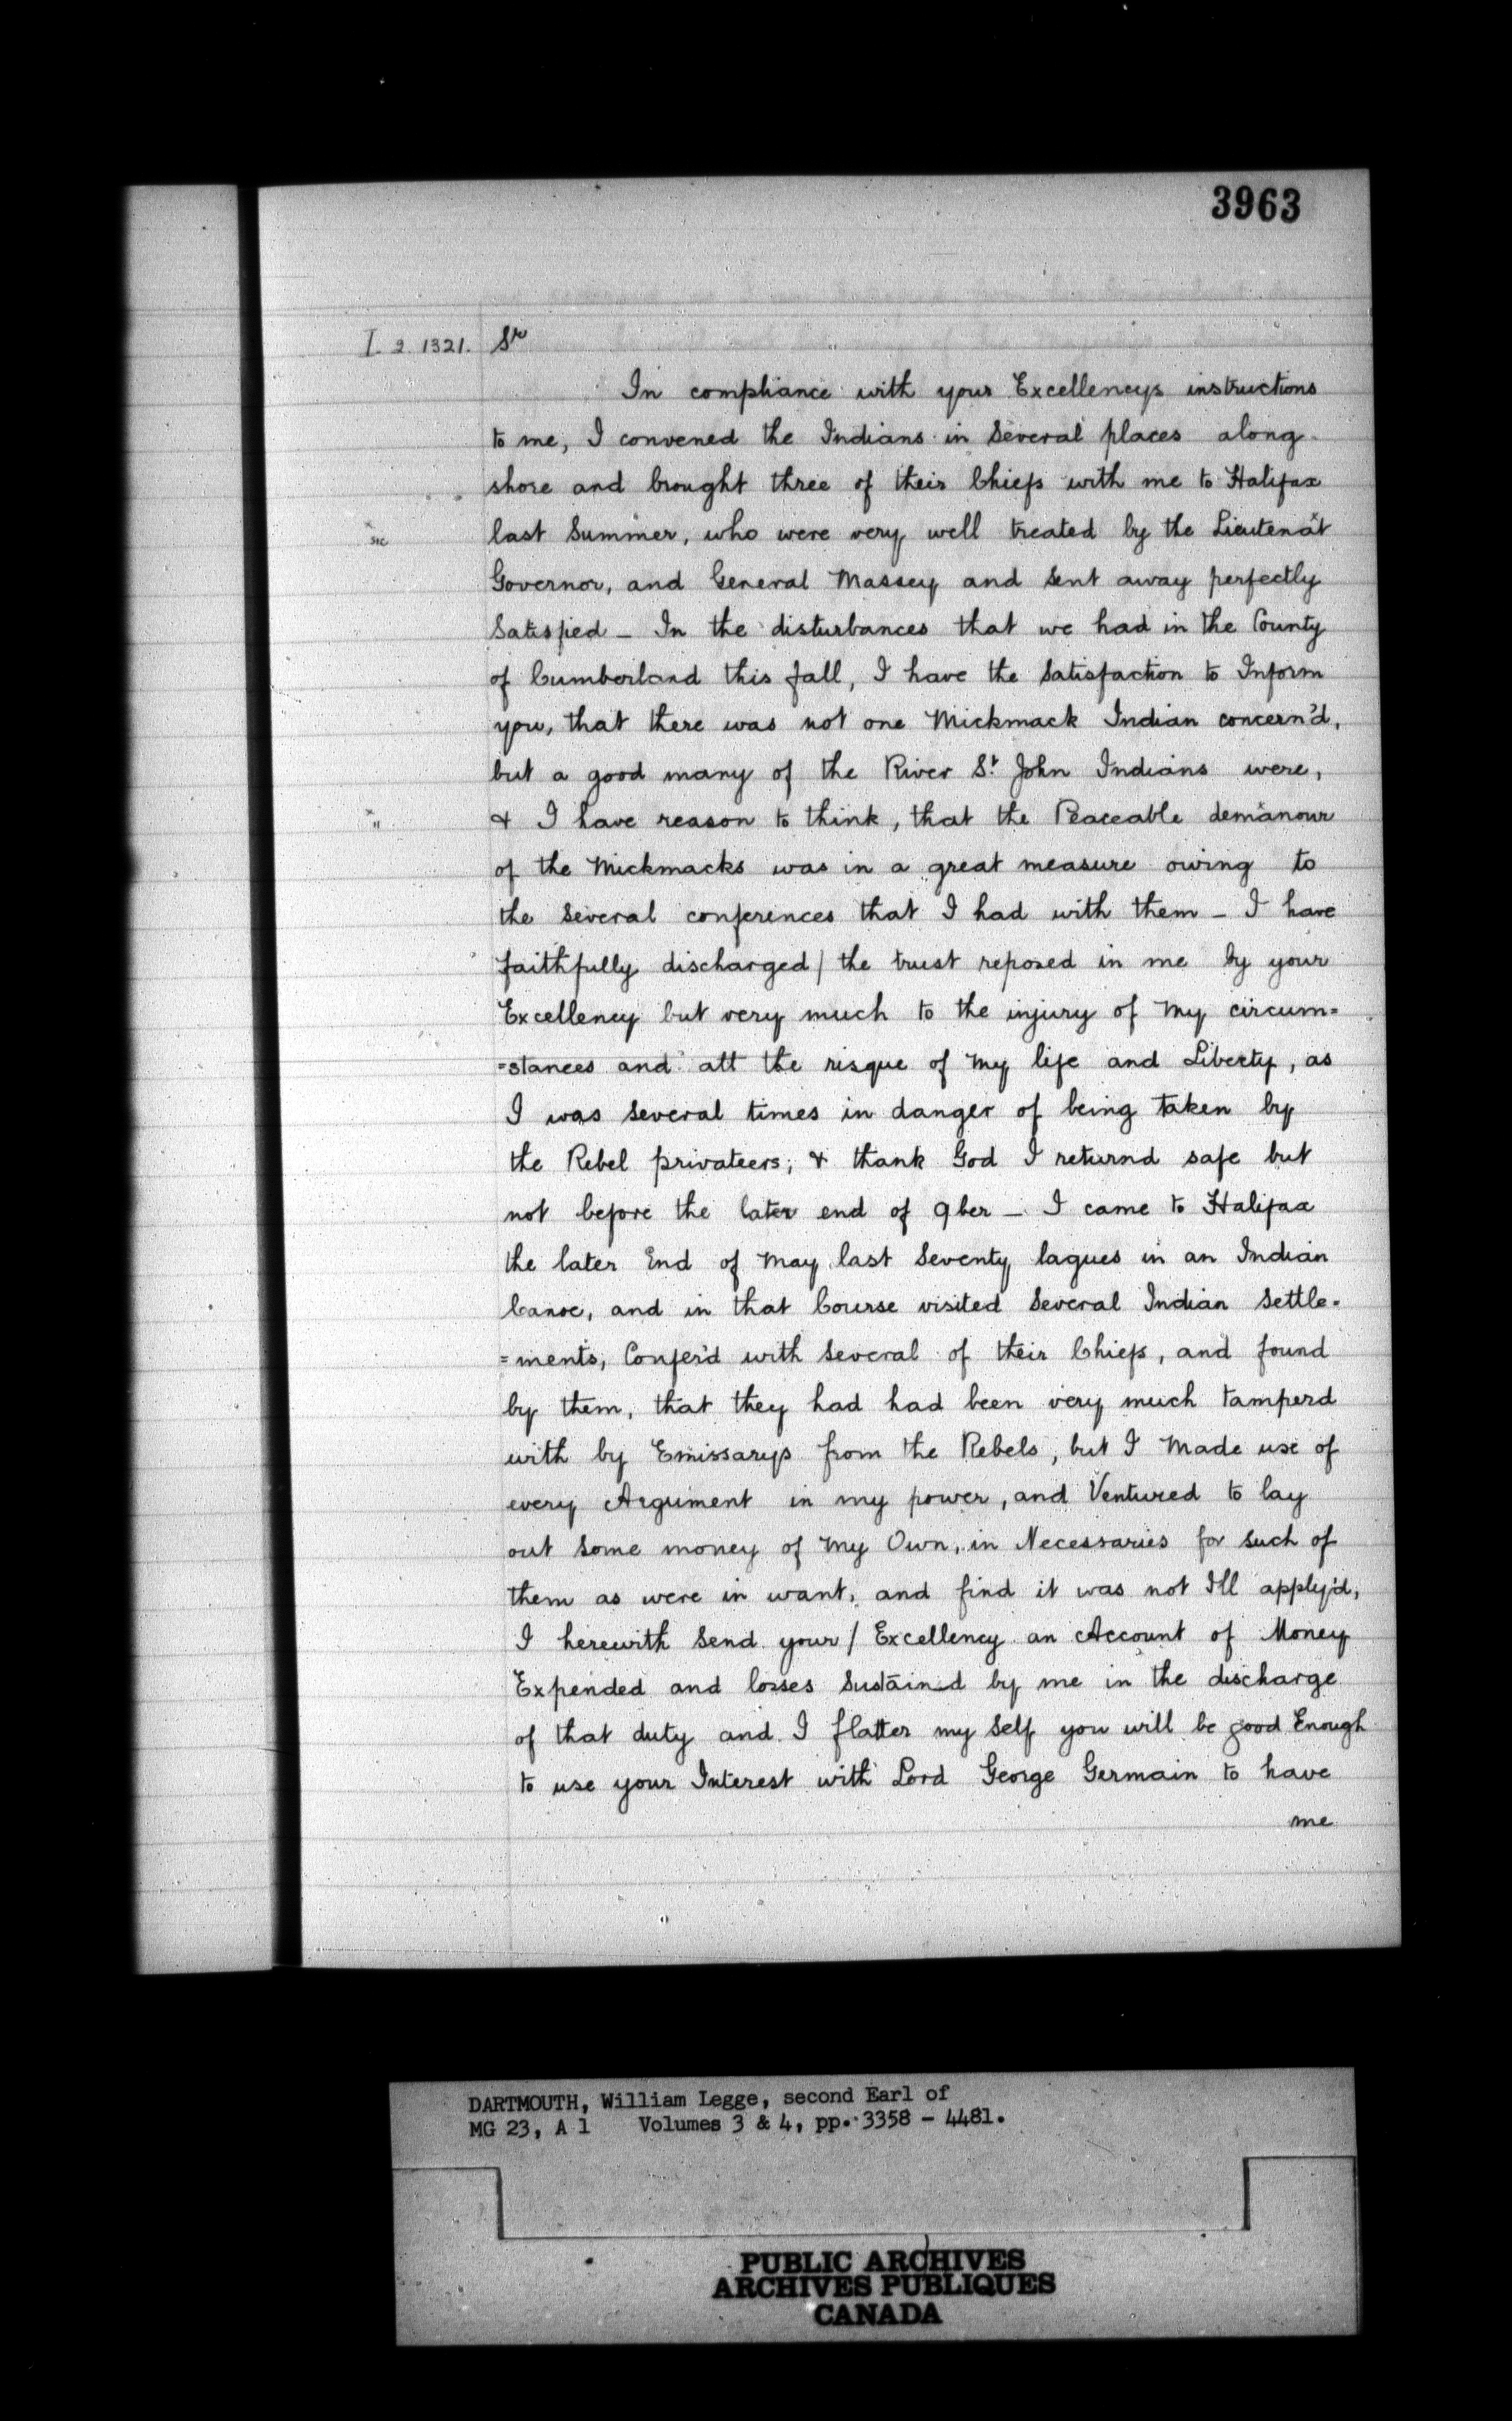 3963
I. 2. 1321. Sr
In compliance with your Excellencys instructions
to me, I convened the Indians in Several places along
shore and brought three of their Chiefs with me to Halifax
x sic last Summer, who were very well treated by the Lieutenatx
Governor, and General Massey and Sent away perfectly
Satisfied – In the disturbances that we had in the County
of Cumberland this fall, I have the Satisfaction to Inform
you, that there was not one Mickmack Indian concern'd,
but a good many of the River St John Indians were,
x " & I have reason to think, that the Peaceable demanourx
of the Mickmacks was in a great measure owing to
the Several conferences that I had with them – I have
faithfully discharged / the trust reposed in me by your
Excellency but very much to the injury of My circum=
=stances and att the risque of My life and Liberty, as
I was Several times in danger of being taken by
the Rebel privateers; & thank God I returnd safe but
not before the later end of 9ber – I came to Halifax
the later End of May last Seventy lagues in an Indian
Canoe, and in that Course visited Several Indian Settle=
=ments, Confer'd with Several of their Chiefs, and found
by them, that they had had been very much tamperd
with by Emissarys from the Rebels, but I Made use of
every Argument in my power, and Ventured to lay
out Some money of My Own, in Necessaries for such of
them as were in want, and find it was not Ill apply'd,
I herewith Send your / Excellency an Account of Money
Expended and losses Sustain.d by me in the discharge
of that duty and I flatter my Self you will be good Enough
to use your Interest with Lord George Germain to have
me
DARTMOUTH, William Legge, second Earl of
MG 23, A 1 Volumes 3 & 4, pp. 3358 - 4481.
PUBLIC ARCHIVES
ARCHIVES PUBLIQUES
CANADA